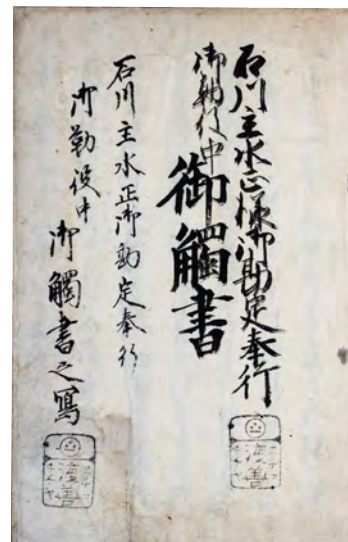 石川主水正様御勘定奉行
御勤役中
御觸書
石川主水正御勘定奉行
御勤役中
御觸書之寫